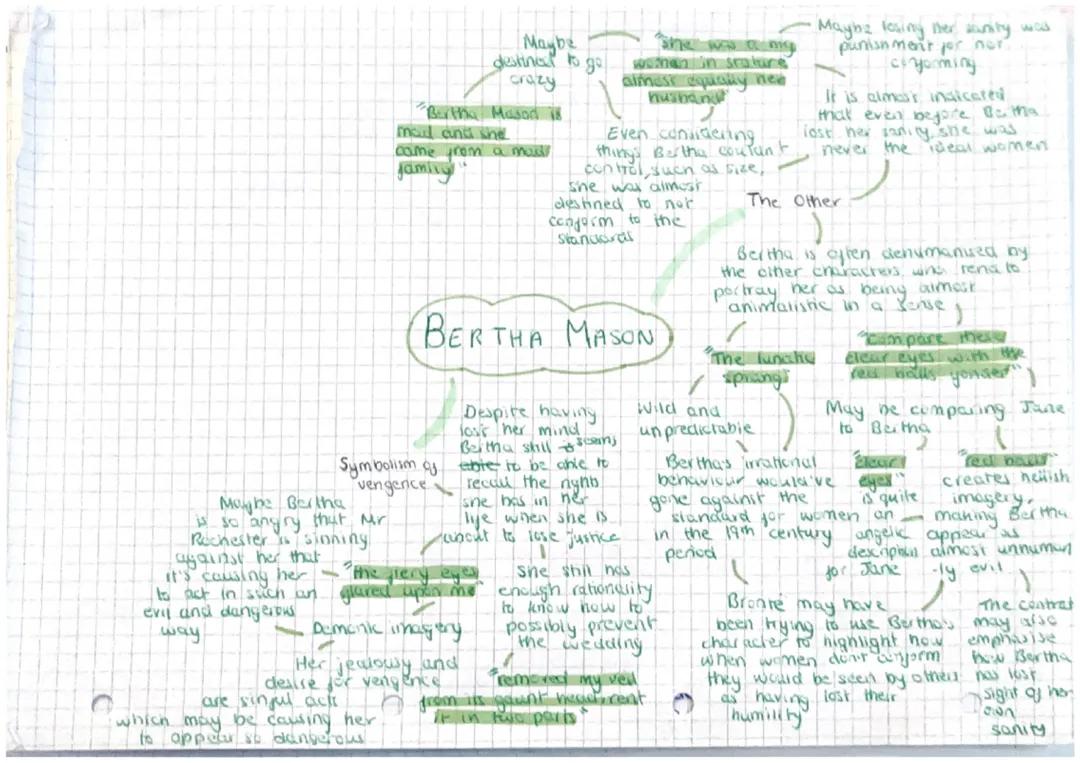 BERTHA MASON
The Other
Maybe losing her sanity was
punishment for not
conforming
"she was a my
woman in stature
almost equally her
husband"
Maybe
destined to go
crazy
"Bertha Mason is
mad and she
came from a mad
family"
Even considering
things Bertha couldn't
control, such as size,
she was almost
destined to not
conform to the
standards
It is almost indicated
that even before Bertha
lost her sanity, she was
never the ideal women
Bertha is often dehumanised by
the other characters who tend to
portray her as being almost
animalistic in a sense
"The lunatic
sprang"
Wild and
unpredictable
Bertha's irrational
behaviour would've
gone against the
standard for women
in the 19th century
period
Bronte may have
been trying to use Bertha's
character to highlight how
when women don't conform
they would be seen by others
as having lost their
humility
"compare these
clear eyes with the
red balls yonder"
May be comparing Jane
to Bertha
"clear
eyes"
is quite
an
angelic
description
for Jane
"red balls"
creates hellish
imagery,
making Bertha
appear as
almost unhuman
-ly evil
The contrast
may also
emphasise
how Bertha
has lost
sight of her
own
sanity
Symbolism of
vengence
Despite having
lost her mind
Bertha still seems
able to be able to
recall the right
she has in her
life when she is
about to lose justice
She still has
enough rationality
to know how to
possibly prevent
the wedding
"removed my veil
from its gaunt head, rent
it in two parts"
"the fiery eyes
glared upon me"
Maybe Bertha
is so angry that Mr
Rochester is sinning
against her that
it's causing her
to act in such an
evil and dangerous
way
Demonic imagery
Her jealousy and
desire for vengence
are sinful acts
which may be causing her
to appear so dangerous